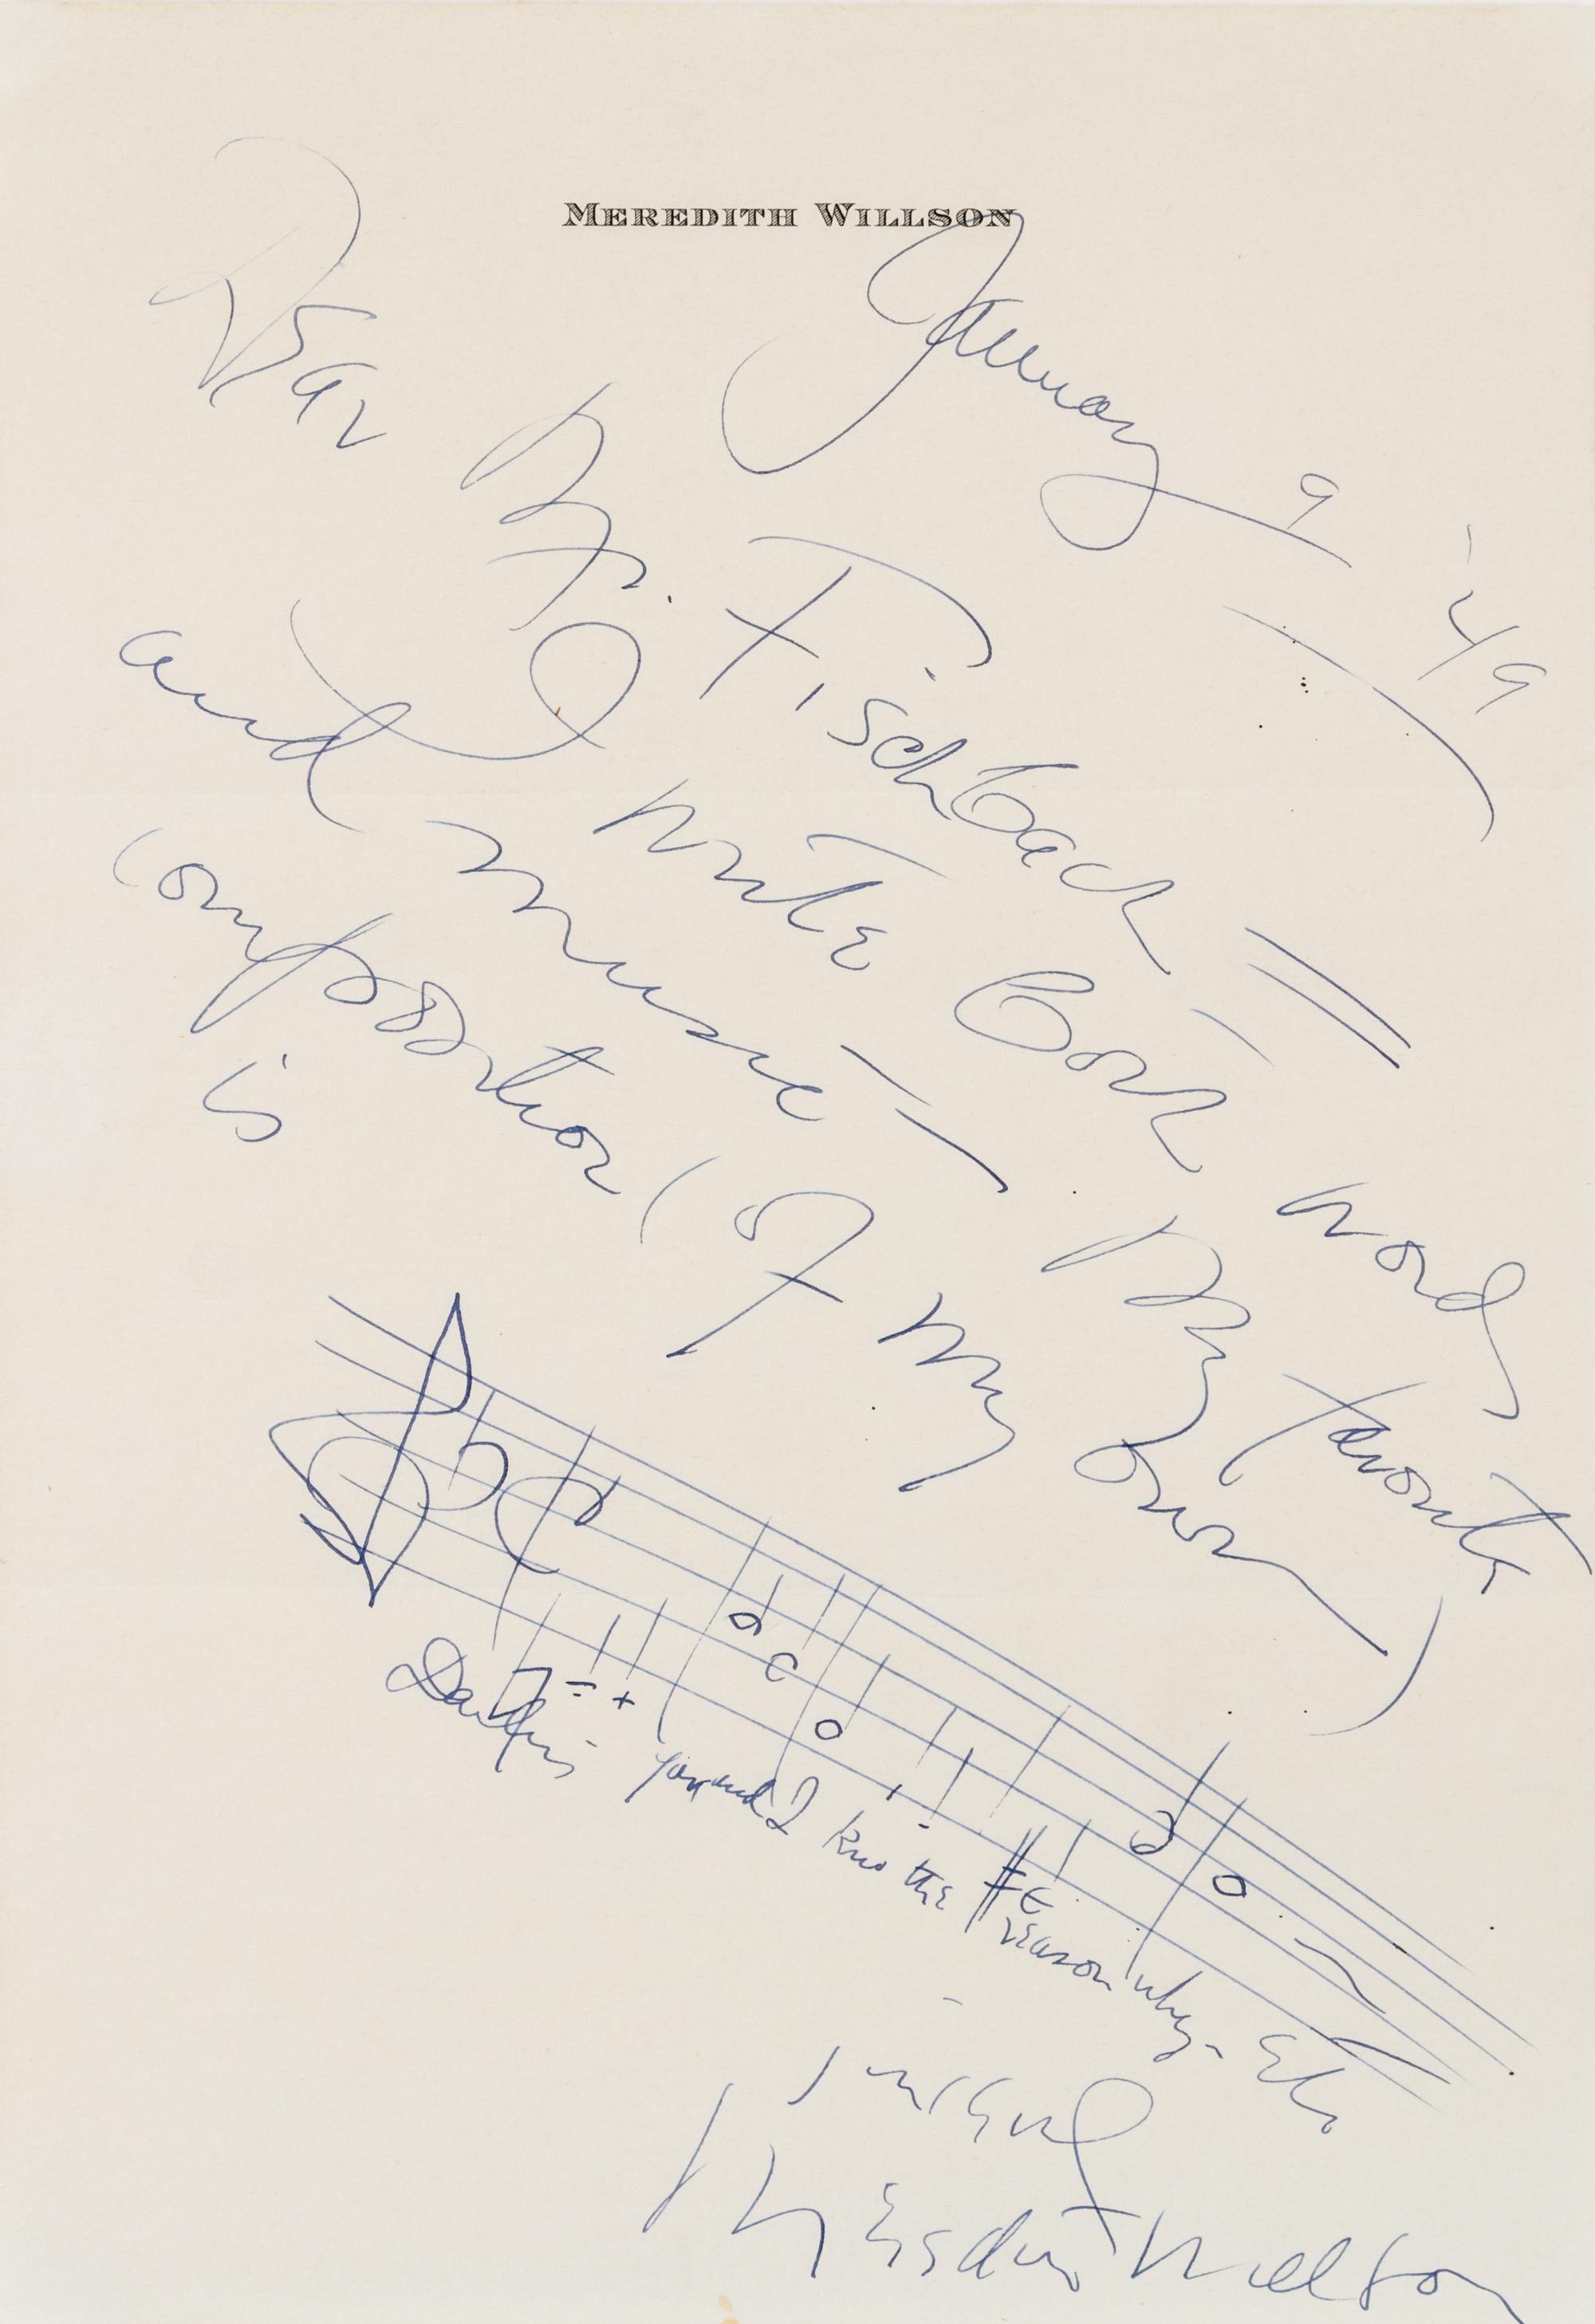 MEREDITH WILLSON
January 9 '49
Dear Mr. Fischback =
I write both words
and music — My favorite
composition (of my own)
is
Darling you and I know the reason why - Etc
Meredith Willson